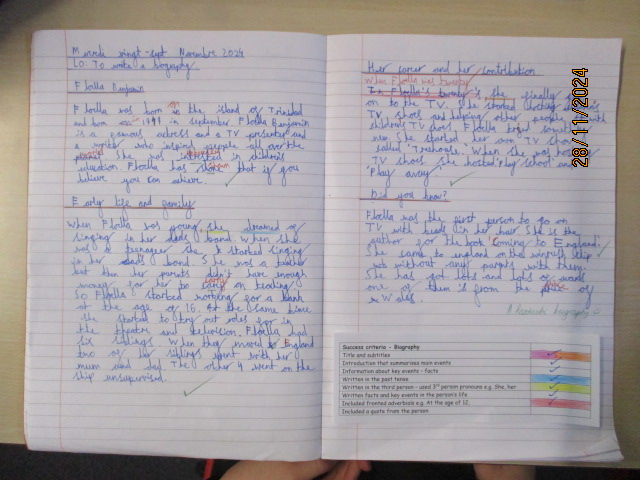 Mercredi vingt-sept Novembre 2024
LO: To write a biography
Floella Benjamin
Floella was born on the island of Trinidad
and born in 1949 in september. Floella Benjamin
is a famous actress and a TV presenter and
a writer who inspired people all over the
She was interested in children's
education. Floella has shown that if you
believe you can achieve.
Early life and family
When Floella was young, she dreamed of
singing in her dads band. When she
was a teenager she started singing
in her dad's band. She was a teacher
but then her parents didn't have enough
money for her to carry on
So Floella started working for a bank
at the age of 16. At the same time
she started to try out roles for in
the theatre and television. Floella had
six siblings. When they moved to England
two of her siblings went with her
mum and dad. The other 4 went on the
ship unsupervised.
Her career and her contribution
When Floella was twenty
In Floella's twenty's she finally
on to the TV. She started
TV shows and helping other people with
childrens TV shows. Floella tryed something
new. She started her own TV show
called 'Treehouse'. When she was hosting
TV shows she hosted 'Play school' and
'Play away'
Did you know?
Floella was the first person to go on
TV with beads in her hair. She is the
author for the book 'Coming to England'.
She came to england on the windrush ship
without any parents with them.
She has got lots and lots of awards
one of them is from the of
Wales.
A fantastic biography
Success criteria - Biography
Title and subtitles
Introduction that summarises main events
Information about key events - facts
Written in the past tense
Written in the third person - used 3rd person pronouns e.g. She, her
Written facts and key events in the person's life
Included fronted adverbials e.g. At the age of 12,
Included a quote from the person
28/11/2024